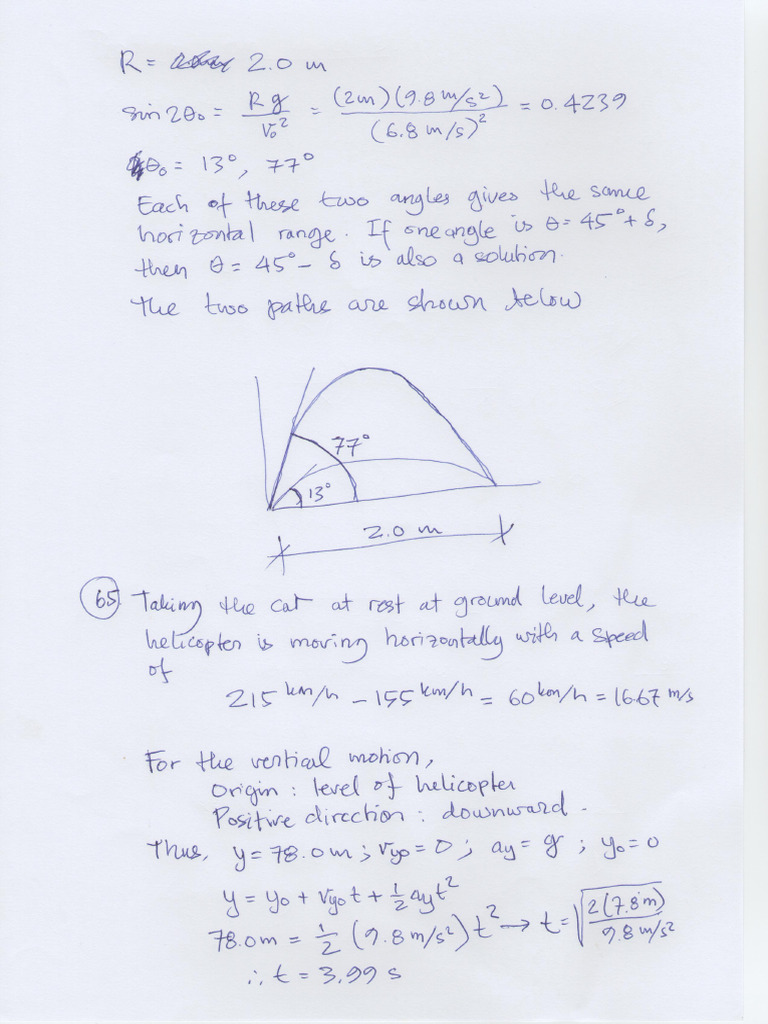 R = 2.0 m
sin 2θ₀ = Rg/v₀² = (2m)(9.8 m/s²)/(6.8 m/s)² = 0.4239
θ₀ = 13°, 77°
Each of these two angles gives the same
horizontal range. If one angle is θ = 45° + δ,
then θ = 45° - δ is also a solution.
The two paths are shown below
77°
13°
2.0 m
65 Taking the cat at rest at ground level, the
helicopter is moving horizontally with a speed
of
215 km/h - 155 km/h = 60 km/h = 16.67 m/s
For the vertical motion,
Origin : level of helicopter
Positive direction : downward.
Thus, y = 78.0 m ; vy₀ = 0 ; ay = g ; y₀ = 0
y = y₀ + vy₀t + ½ ayt²
78.0m = ½ (9.8 m/s²) t² → t = √(2(7.8m)/9.8 m/s²)
∴ t = 3.99 s